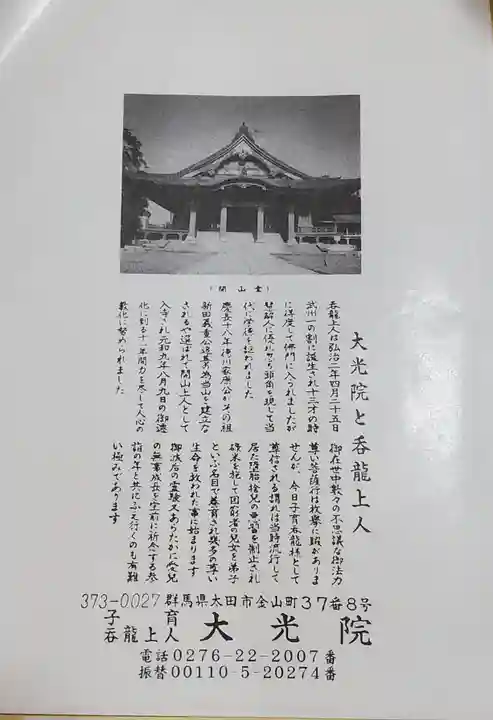 (開山堂)
大光院と呑龍上人
呑龍上人は弘治二年四月二十五日
武州一の割に誕生され十三才の時
に得度して佛門に入られましたが
智解人に優れ忽ち頭角を現して当
代に学徳を謳われました
慶長十八年徳川家康公がその祖
新田義重公追善の為当山を建立な
されるや選ばれて開山上人として
入寺され元和九年八月九日の御遷
化に到る十一年間力を尽して人心の
教化に努められました
御在世中数々の不思議な御法力
尊い菩薩行は枚挙に暇がありま
せんが、今日子育呑龍様として
尊信される謂れは当時流行して
居た堕胎捨児の悪習を制止され
禄米を祀して困窮者の児女を弟子
といふ名目で養育され幾多の尊い
生命を救われた事に始まります
御滅后の霊験又あらたかに愛児
の無事成長を宝前に祈念する参
詣の年と共にふえ行くのも有難
い極みであります
373-0027 群馬県太田市金山町37番8号
子育呑龍上人 大光院
電話0276-22-2007番
振替00110-5-20274番